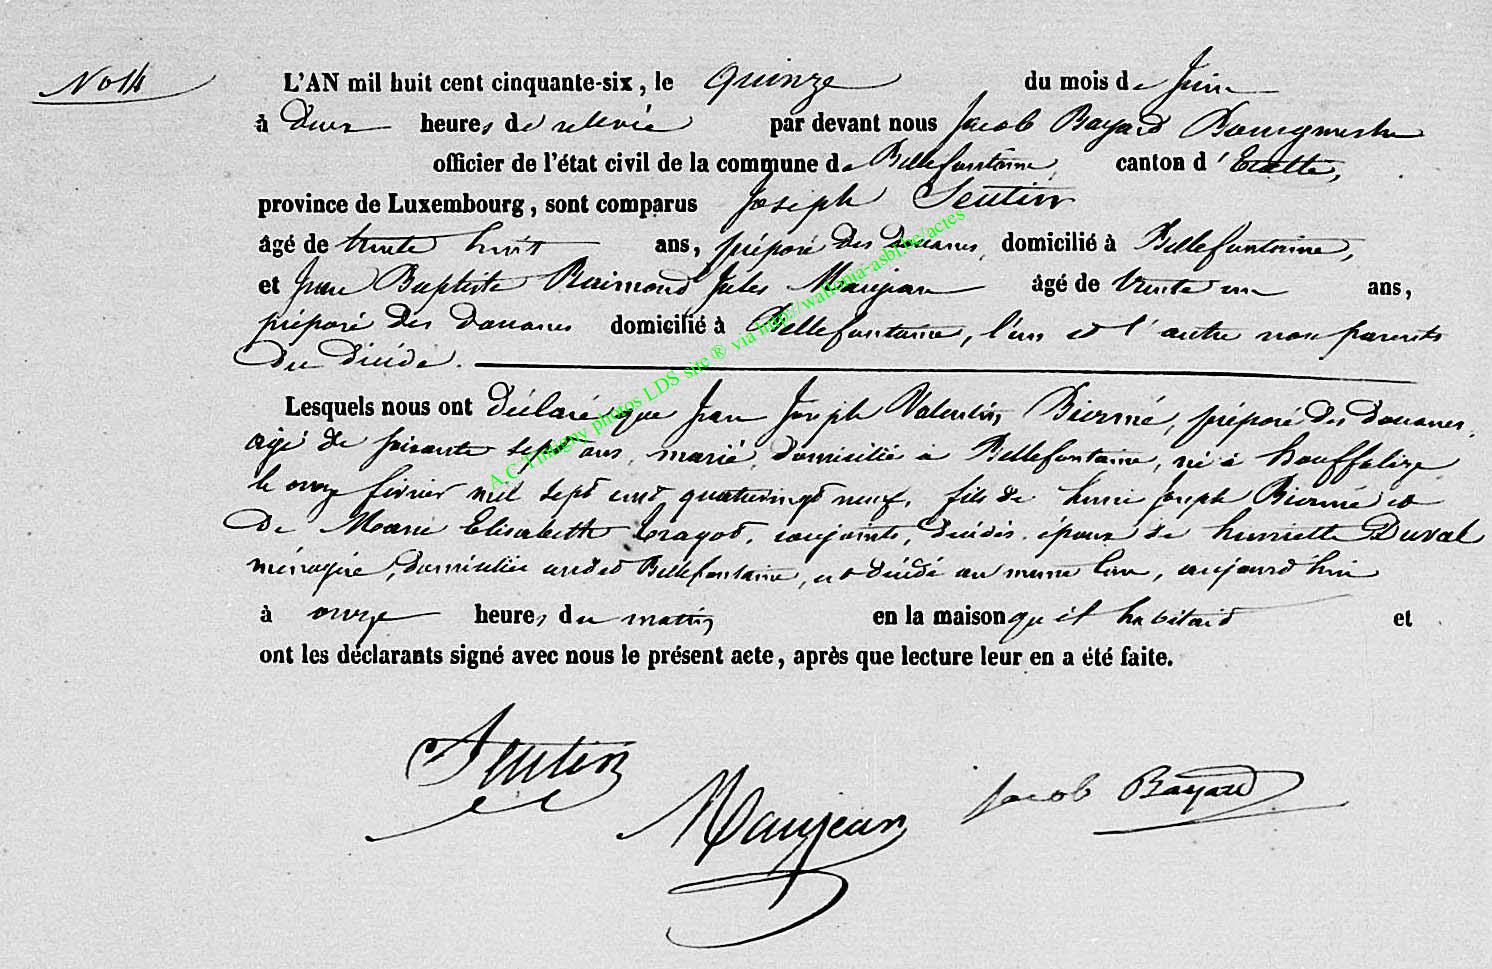 No 14
L'AN mil huit cent cinquante-six, le quinze du mois de Juin
à deux heures de relevée par devant nous Jacob Bayard Bourgmestre
officier de l'état civil de la commune de Bellefontaine, canton d'Etalle,
province de Luxembourg, sont comparus Joseph Seutin
âgé de trente huit ans, préposé des douanes, domicilié à Bellefontaine,
et Jean Baptiste Raimond Jules Maujean âgé de trente un ans,
préposé des douanes domicilié à Bellefontaine, l'un et l'autre non parents
du décédé.
Lesquels nous ont déclaré que Jean Joseph Valentin Biermé, préposé des douanes,
agé de soixante sept ans, marié, domicilié à Bellefontaine, né à houffalize
le onze février mil sept cent quatrevingt neuf, fils de henri Joseph Biermé et
de Marie Elisabeth Tragot, conjoints, décédés, époux de henriette Duval
ménagère, domiciliée audit Bellefontaine, est décédé au meme lieu, aujourd'hui
à onze heures du matin en la maison qu'il habitait et
ont les déclarants signé avec nous le présent acte, après que lecture leur en a été faite.
Seutin
Maujean
Jacob Bayard
A.C. Tintigny photos LDS site ® via http://wallonia-asbl.be/actes